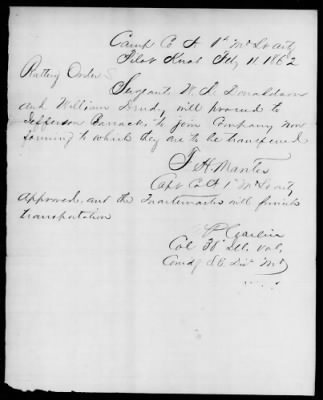 Camp Co A 1st Mo Lt arty
Pilot Knob Feby 11. 1862
Order
Sergant W. L. Donaldson
and William will proceed to
Jefferson Barracks, to join Company now
forming to which they are to be transfered
T. H. Manter
Capt Co A 1st Mo Lt arty
Approved, and the Quartermaster will furnish
transportation
P Carlin
Col 38th Ills. Vol,
Comdg S E Dist Mo